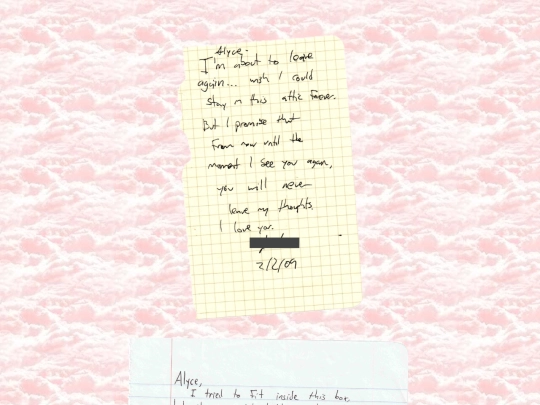 Alyce.
I'm about to leave
again... wish I could
stay in this attic Forever.
But I promise that
From now until the
moment I see you again,
you will never
leave my thoughts.
I love you.
2/2/09
Alyce,
I tried to Fit inside this box.